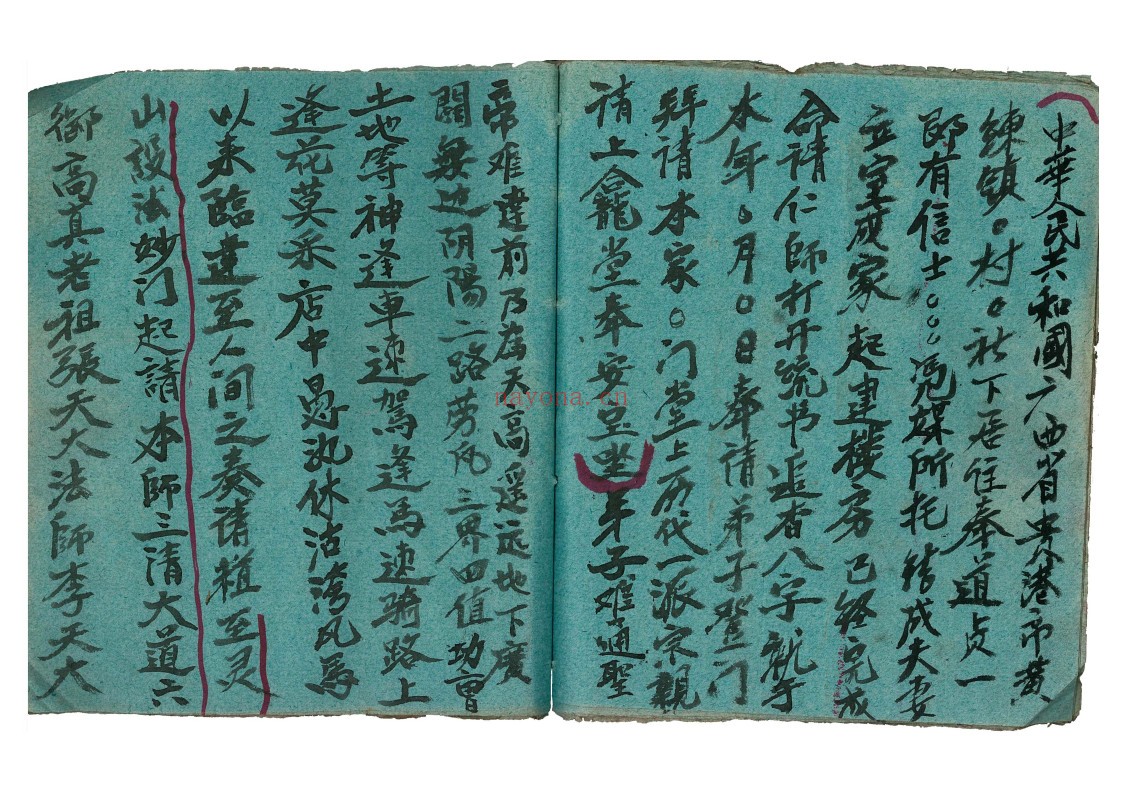 中華人民共和國广西省贵港市黄
練镇○村○社下居住奉道贞一
郎有信士○○○凭媒所托结成夫妻
立室成家起建楼房已经完成
命请仁師打开疏书追查八字就于
本年○月○○日奉請弟子登门
拜請本家○门堂上历代一派宗親
请上龕堂奉安宝坐弟子难通聖
帝难達前乃為天高遥远地下廣
闊無边阴陽二路劳凡三界四值功曹
土地等神逢車速駕逢馬速騎路上
逢花莫采店中酒休沽湾凡馬
以来臨達至人间之奏请植至灵
山設法妙门起請本師三清大道六
御高真老祖張天大法師李天大
nayona.cn